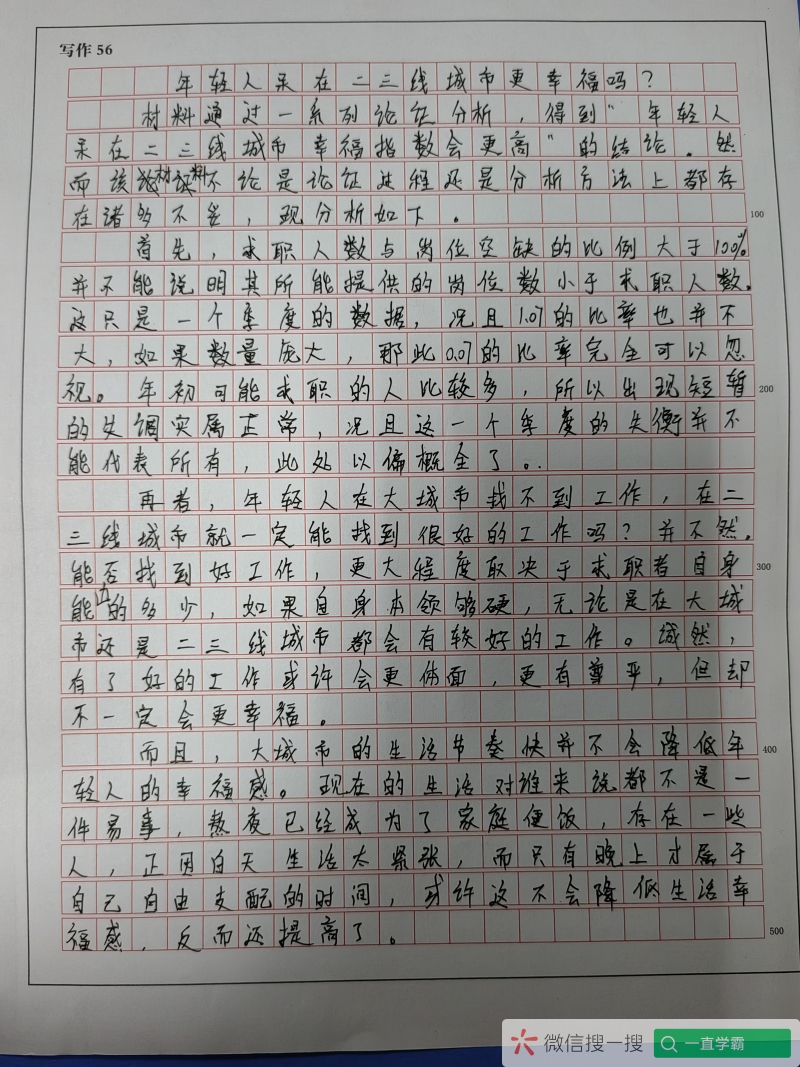 写作 56
年轻人呆在二三线城市更幸福吗？
材料通过一系列论证分析，得到"年轻人
呆在二三线城市幸福指数会更高"的结论。然
而该材料不论是论证过程还是分析方法上都存
在诸多不妥，现分析如下。
100
首先，求职人数与岗位空缺的比例大于100%
并不能说明其所能提供的岗位数小于求职人数。
这只是一个季度的数据，况且1.07的比率也并不
大，如果数量庞大，那此0.07的比率完全可以忽
视。年初可能求职的人比较多，所以出现短暂
200
的失调实属正常，况且这一个季度的失衡并不
能代表所有，此处以偏概全了。.
再者，年轻人在大城市找不到工作，在二
三线城市就一定能找到很好的工作吗？并不然。
能否找到好工作，更大程度取决于求职者自身
300
能力的多少，如果自身本领够硬，无论是在大城
市还是二三线城市都会有较好的工作。诚然，
有了好的工作或许会更体面，更有尊严，但却
不一定会更幸福。
而且，大城市的生活节奏快并不会降低年
400
轻人的幸福感。现在的生活对谁来说都不是一
件易事，熬夜已经成为了家庭便饭，存在一些
人，正因白天生活太紧张，而只有晚上才属于
自己自由支配的时间，或许这不会降低生活幸
福感，反而还提高了。
500
微信搜一搜
一直学霸